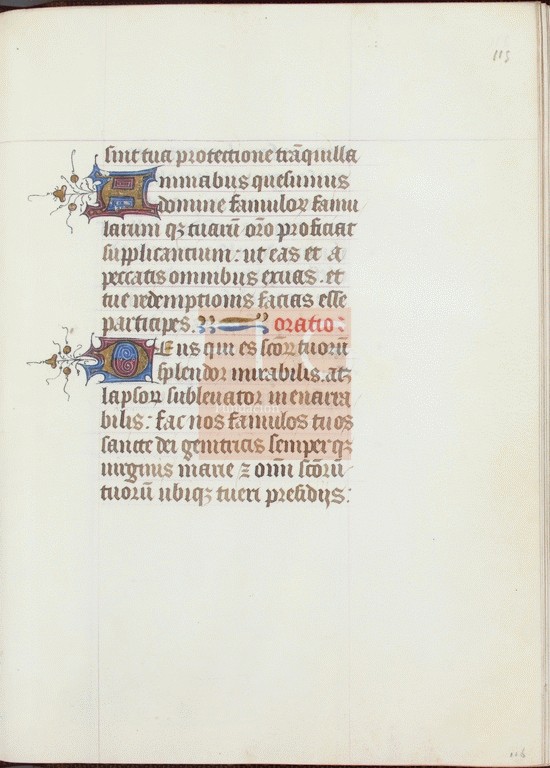 113
sint tua protectione trāquilla
Animabus quesumus
domine famuloꝝ famu
larum qꝫ tuarū orō proficiat
supplicantium: ut eas et a
peccatis omnibus exuas. et
tue redemptionis facias esse
participes. oratio:
Deus qui es scōꝝ tuorū
splendor mirabilis. atqꝫ
lapsoꝝ subleuator inenarra
bilis: fac nos famulos tuos
sancte dei genitricis semperqꝫ
uirginis marie ⁊ omī scōrū
tuorū ubiqꝫ tueri presidijs: